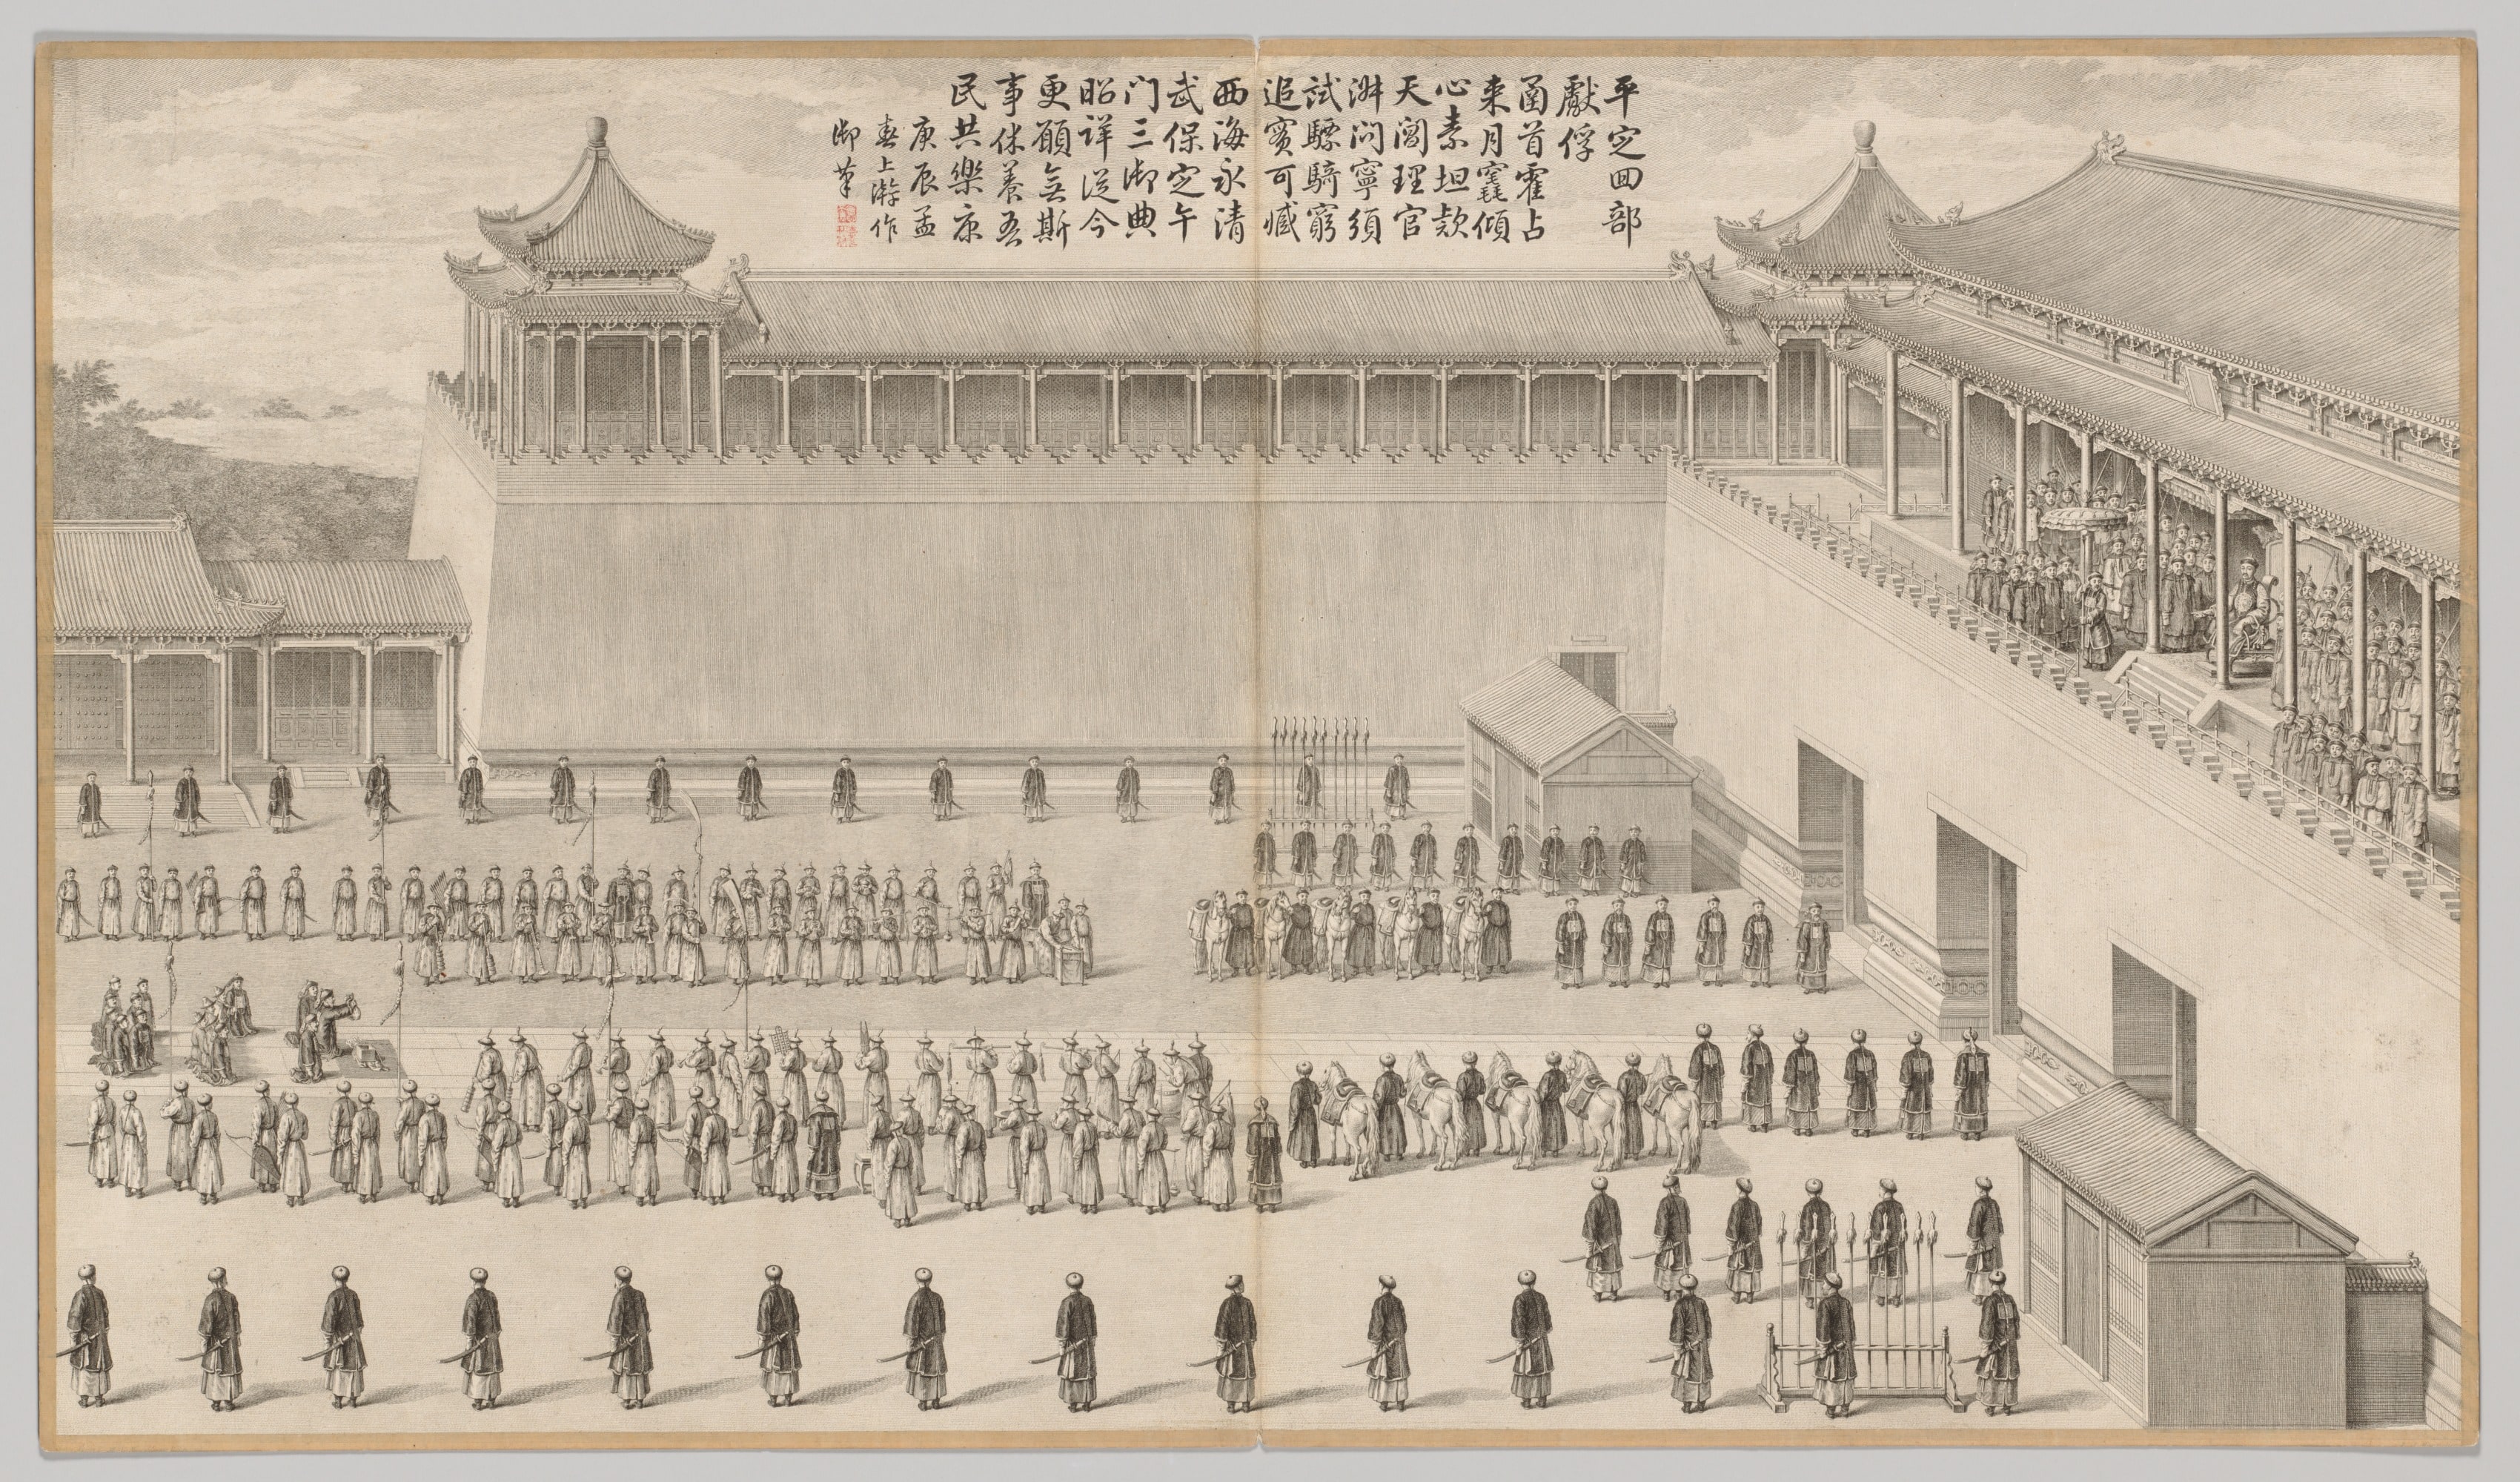 平定囬部
獻俘
圅首霍占
来月竁傾
心素坦款
天閶理官
淑问寧須
試驃騎窮
追實可臧
西海永清
武保定午
门三御典
昭詳從今
更願無斯
事休養吾
民共樂康
庚辰孟
春上澣作
御筆